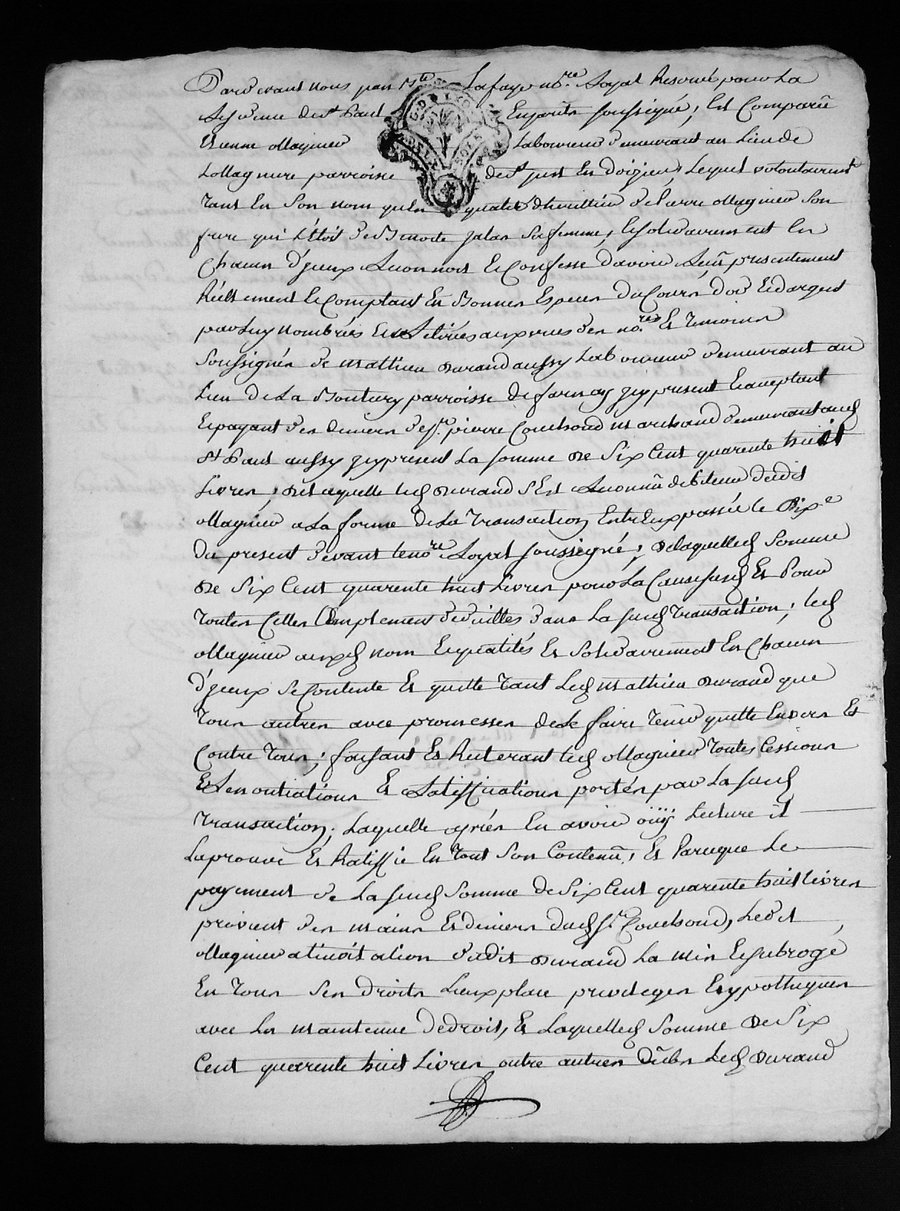 Pardevant nous jean Mte Lafaye nore Royal Reservé pour la
de st Paul En jarits soussigné, Est Comparu
Estienne Magnieu Laboureur demeurant au Lieu de
Lollagniere parroisse de st just En doizieu, Lequel volontairemt
tant En Son nom qu'En qualité d'heritier de Pierre Magnieu Son
frere qui L'Etoit de Benoite jalas Sa femme, Et solidairement En
Chacun d'jceux A Reconnoit Et Confesse d'avoir Reçu presentement
Réellement Et Comptant En Bonnes Especes du Cours d'or Et d'argent
par Luy nombrés Et Retirés aux vues des nores Et Temoins
Soussignés de Mathieu Durand aussy Laboureur demeurant au
Lieu de La parroisse de farnay jcy present Et acceptant
Et payant des deniers de sr pierre Couchoud Marchand demeurant aud
st Paul aussy jcy present La somme de Six Cent quarente huit
Livres, de Laquelle led Durand s'Est Reconnu debiteur dudit
Magnieu a La forme de La Transaction Entr'Eux passée le Dixe
du present devant le nore Royal soussigné, de laquelle Somme
de Six Cent quarente huit Livres pour La Cause susd Et Pour
Toutes Celles Amplement detaillés dans La susd Transaction, led
Magnieu auxd nom Et qualités Et Solidairement En Chacun
d'jceux Se Contente Et quitte Tant Led Mathieu Durand que
Tous autres avec promesses de Le faire Tenir quitte Envers Et
Contre Tous, faisant Et Reiterant led Magnieu Toutes Cessions
Et Renontiations Et Ratiffications portés par La susd
Transaction, Laquelle après En avoir oüy Lecture il
L'aprouve Et Ratiffie En Tout Son Contenu, Et Parceque Le
payement de La susd Somme de Six Cent quarente huit Livres
provient des mains Et deniers dud sr Couchoud, Ledit
Magnieu a l'invitation dudit Durand La mis Et subrogé
En Tous Ses droits Lieux place privileges Et ypotheques
avec Les maintenue de droit, Et Laquelle Somme de Six
Cent quarente huit Livres outre autres Led Durand